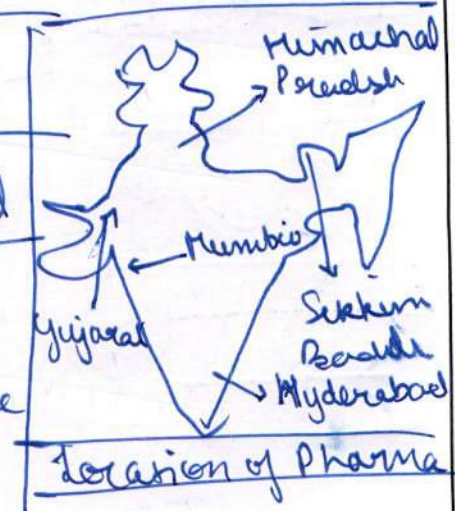 Himachal
Pradesh
Mumbio
Gujarat
Sikkim
Hyderabad
Location of Pharma